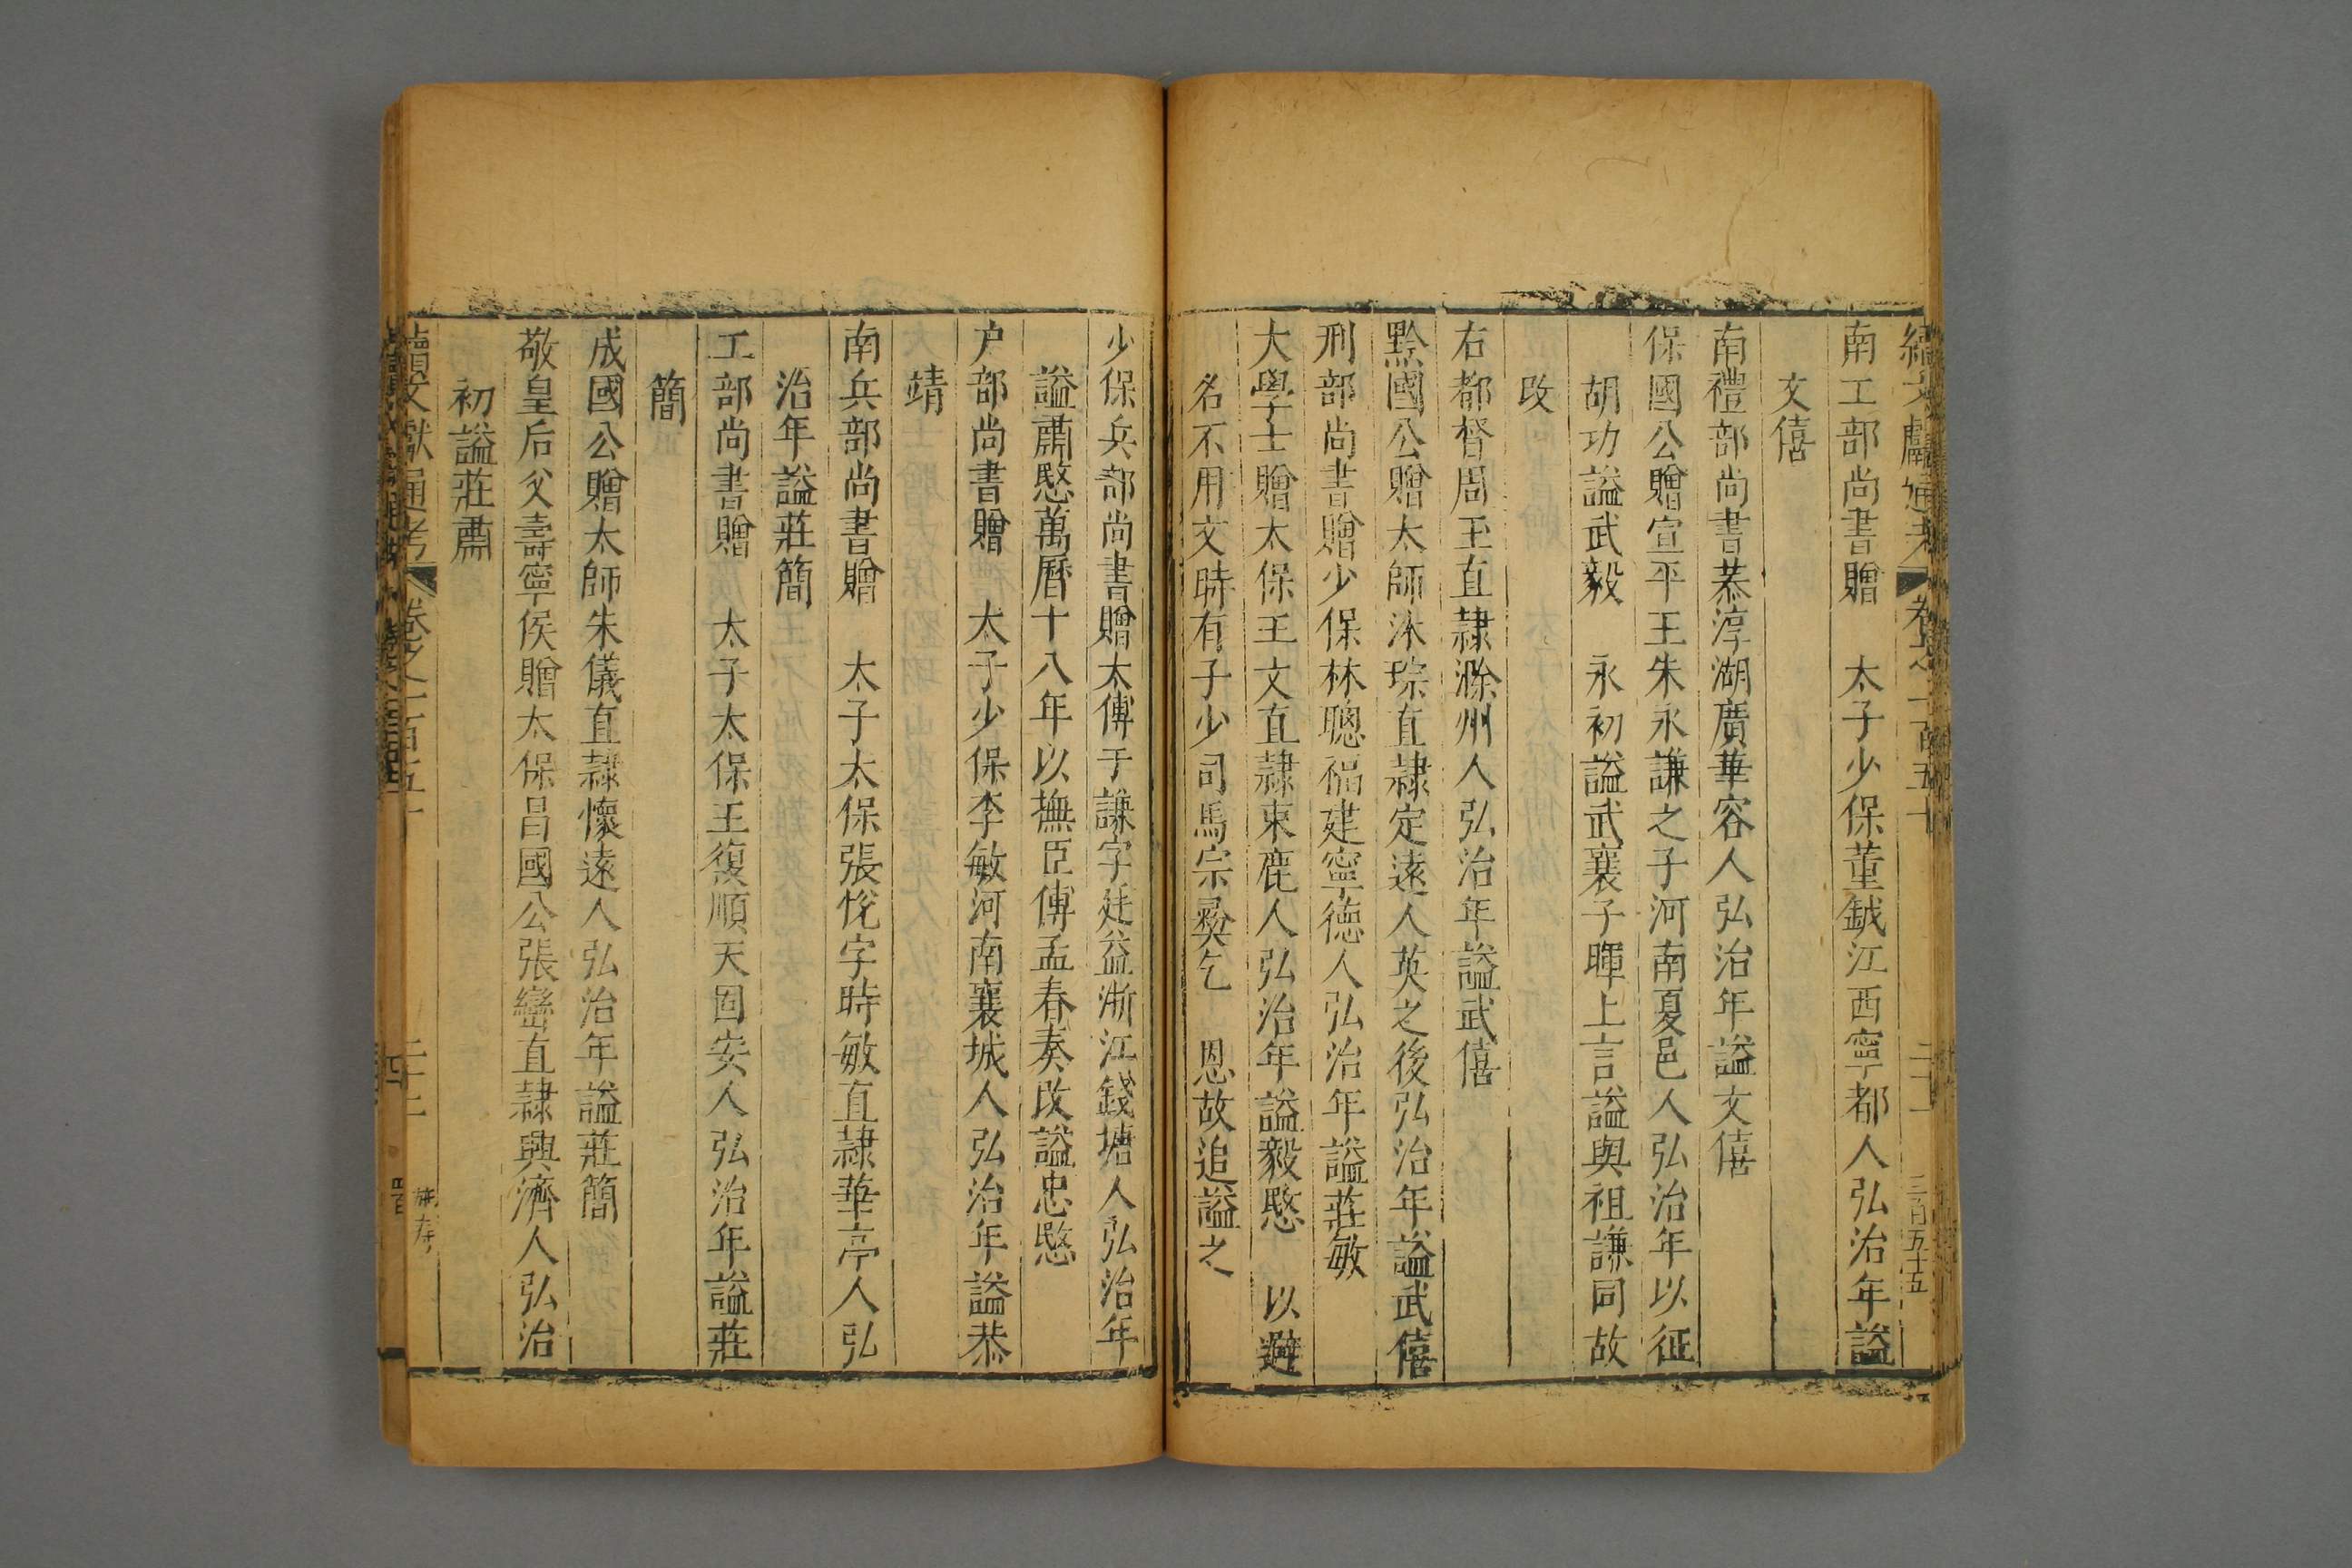 續文獻通考 卷之一百五十
南工部尚書贈 太子少保董鉞江西寧都人弘治年謚
文僖
南禮部尚書黃淳湖廣華容人弘治年謚文僖
保國公贈宣平王朱永謙之子河南夏邑人弘治年以征
胡功謚武毅 永初謚武襄子暉上言謚與祖謙同故
改
右都督周玉直隸滁州人弘治年謚武僖
黔國公贈太師沐琮直隸定遠人英之後弘治年謚武僖
刑部尚書贈少保林聰福建寧德人弘治年謚莊敏
大學士贈太保王文直隸束鹿人弘治年謚毅愍 以避
名不用文時有子少司馬宗彜乞 恩故追謚之
少保兵部尚書贈太傅于謙字廷益浙江錢塘人弘治年
謚肅愍萬曆十八年以撫臣傅孟春奏改謚忠愍
户部尚書贈 太子少保李敏河南襄城人弘治年謚恭
靖
南兵部尚書贈 太子太保張悅字時敏直隸華亭人弘
治年謚莊簡
工部尚書贈 太子太保王復順天固安人弘治年謚莊
簡
成國公贈太師朱儀直隸懷遠人弘治年謚莊簡
敬皇后父壽寧侯贈太保昌國公張巒直隸興濟人弘治
初謚莊肅
續文獻通考 卷之一百五十 二十二